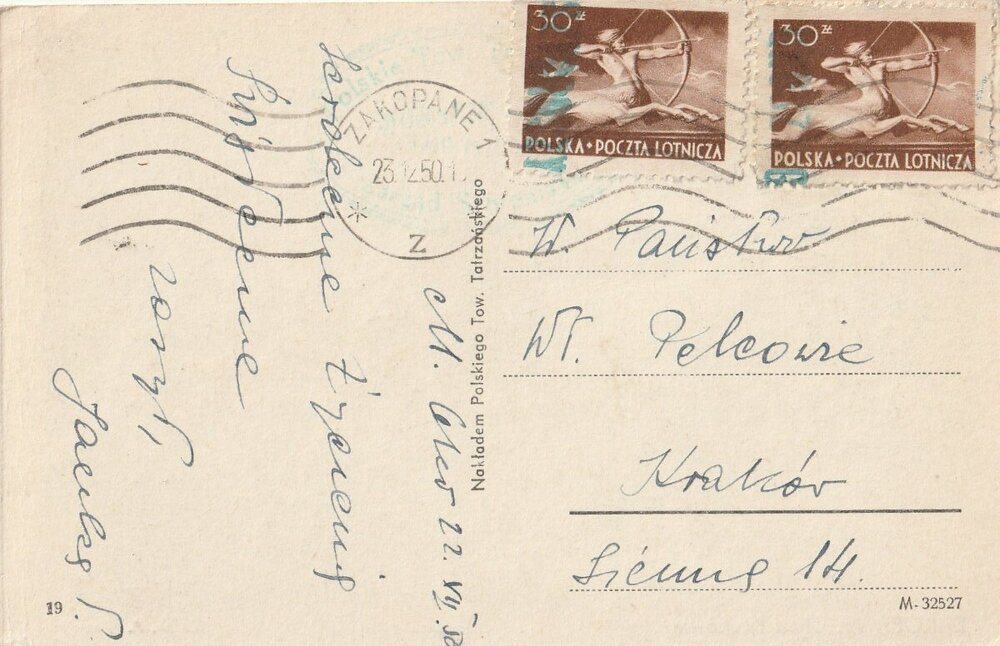 30 zł
POLSKA • POCZTA LOTNICZA
30 zł
POLSKA • POCZTA LOTNICZA
ZAKOPANE 1
23.12.50.1
z
Serdeczne życzenia
Świąteczne
M. Oko 22. XII. 50
Nakładem Polskiego Tow. Tatrzańskiego
W. Państwo
Wł. Pelcowie
Kraków
Sienna 14.
19
M-32527